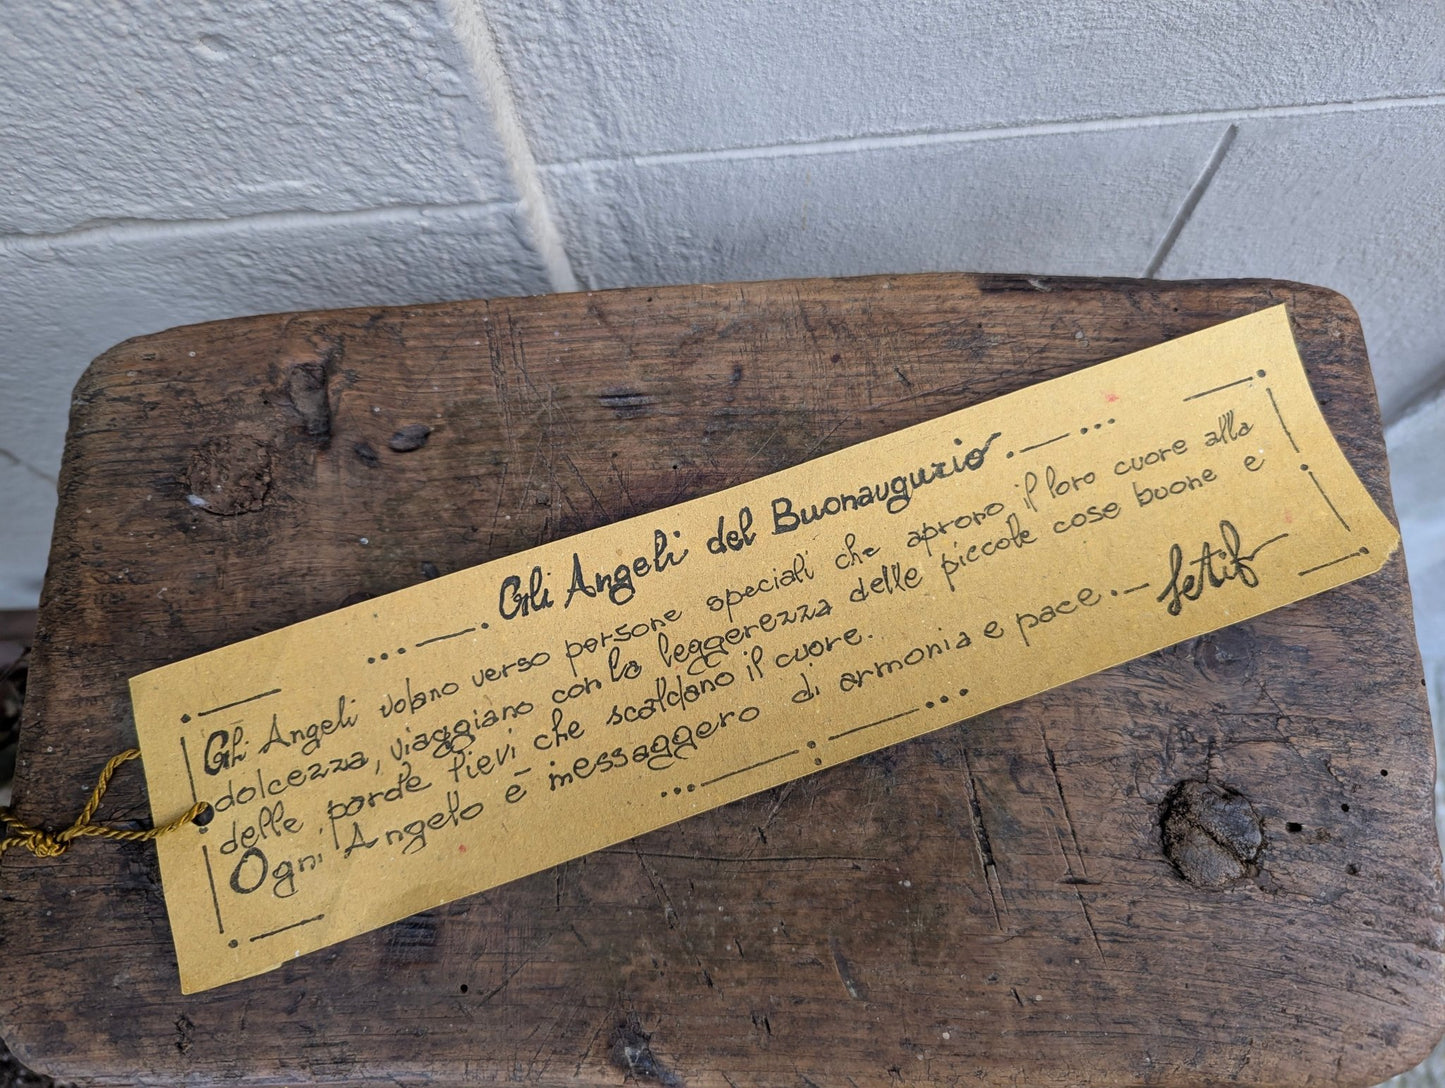 ... — . Gli Angeli del Buonaugurio . — ...
Gli Angeli volano verso persone speciali che aprono il loro cuore alla
dolcezza, viaggiano con la leggerezza delle piccole cose buone e
delle parole lievi che scaldano il cuore.
Ogni Angelo è messaggero di armonia e pace . —